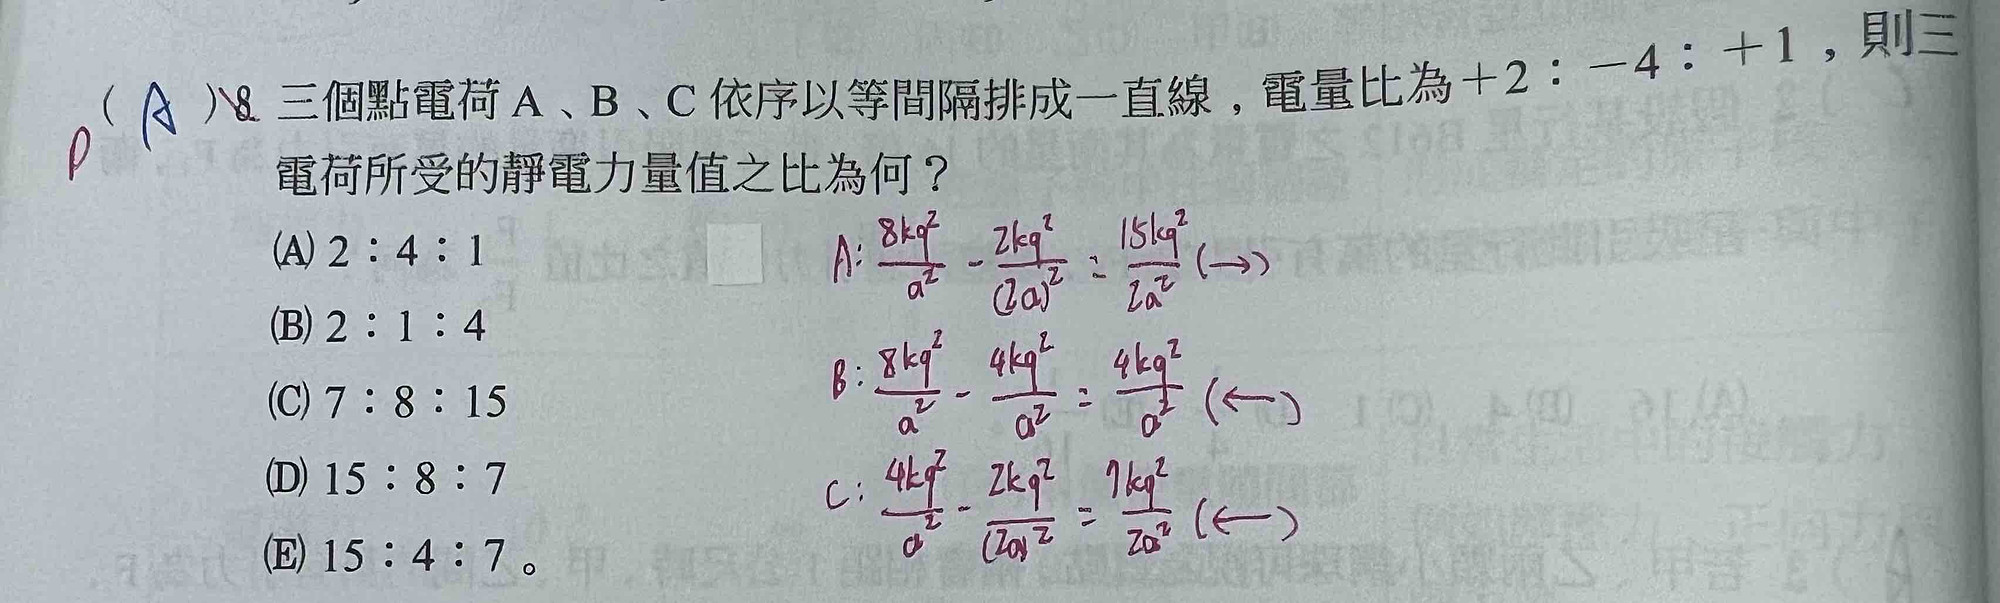 ( A ) 8. 三個點電荷 A、B、C 依序以等間隔排成一直線，電量比為+2：-4：+1，則三
D
電荷所受的靜電力量值之比為何？
(A) 2：4：1
(B) 2：1：4
(C) 7：8：15
(D) 15：8：7
(E) 15：4：7。
A: 8kq²/a² - 2kq²/(2a)² = 15kq²/2a² (→)
B: 8kq²/a² - 4kq²/a² = 4kq²/a² (←)
C: 4kq²/a² - 2kq²/(2a)² = 7kq²/2a² (←)